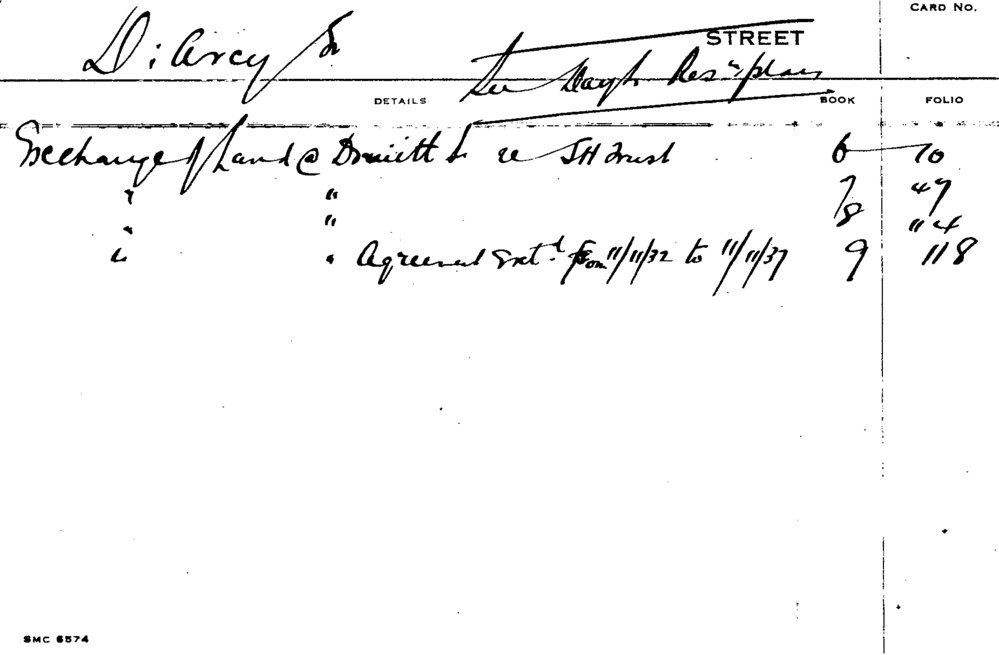 CARD No.
D'Arcy St STREET
See Res'n plan
DETAILS BOOK FOLIO
Exchange of Land @ re SH Trust 6 10
" " 7 47
" " 8 114
" " Agreement Ext'd from 11/11/32 to 11/11/37 9 118
SMC 6574